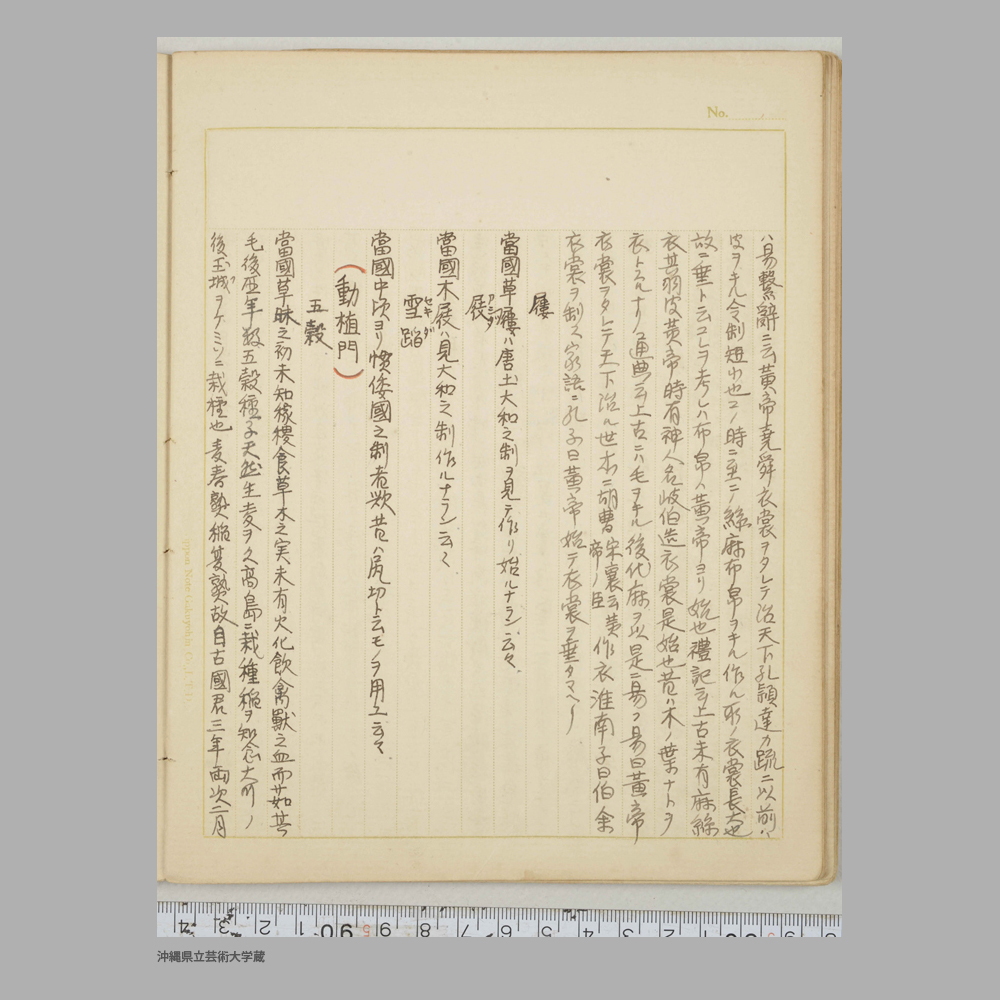 No.
ハ易繋辭ニ云黄帝堯舜衣裳ヲタレテ治天下孔穎達カ疏ニ以前ハ
皮ヲキル今制短小也コノ時ニ至ニノ絲麻布帛ヲキル作ル所ノ衣裳長大也
故ニ垂ト云コレヲ考レハ布帛ハ黄帝ヨリ始也禮記云上古未有麻絲
衣其羽皮黄帝時有神人名岐伯造衣裳是始也昔ハ木ノ葉ナトヲ
衣トスルナリ通典云上古ニハ毛ヲキル後代麻ヲ以是ニ易フ易曰黄帝
衣裳ヲタレテ天下治ル世本ニ胡曹 宋衷云黄帝ノ臣 作衣淮南子曰伯余
衣裳ヲ制ス家語ニ孔子曰黄帝始テ衣裳ヲ垂タマヘリ
屨
當國草屨ハ唐土大和之制ヲ見テ作リ始ルナラン云々
屐 アシダ
當國木屐ハ見大和之制作ルナラン云々
雪踏 セキダ
當國中頃ヨリ慣倭國之制者歟昔ハ尻切ト云モノヲ用ユ云々
(動植門)
五穀
當國草昧之初未知稼穡食草木之実未有火化飲禽獸之血而茹其
毛後歴年数五穀種子天然生麦ヲ久高島ニ栽種稲ヲ知念大川ノ
後玉城ヲケミソニ栽種也麦春熟稲夏熟故自古國君三年両次二月
沖縄県立芸術大学蔵